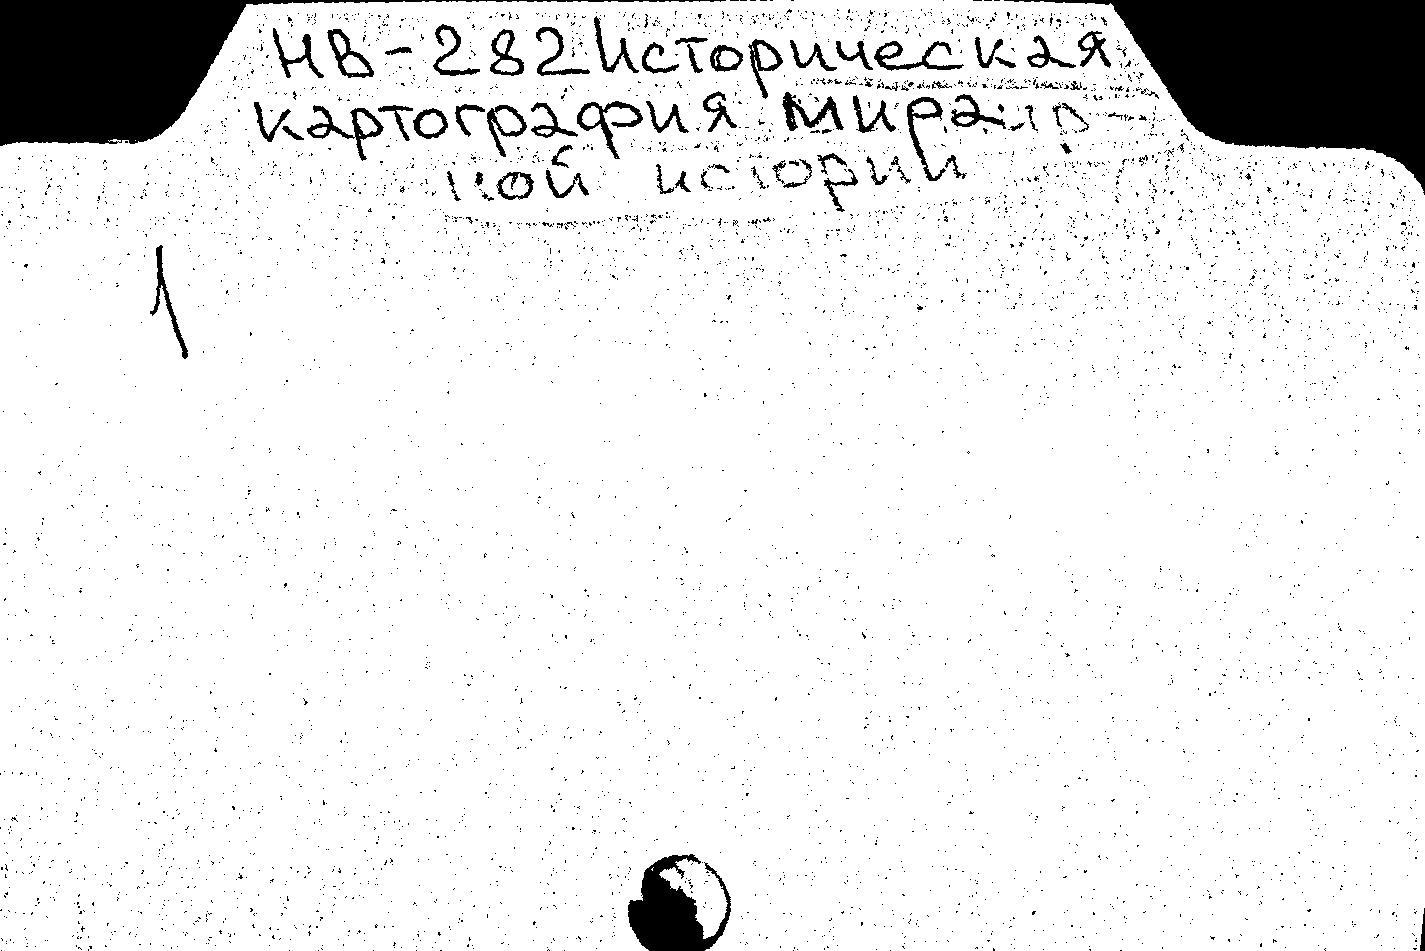 НВ-282 Историческая
картография мира
ной истории
1